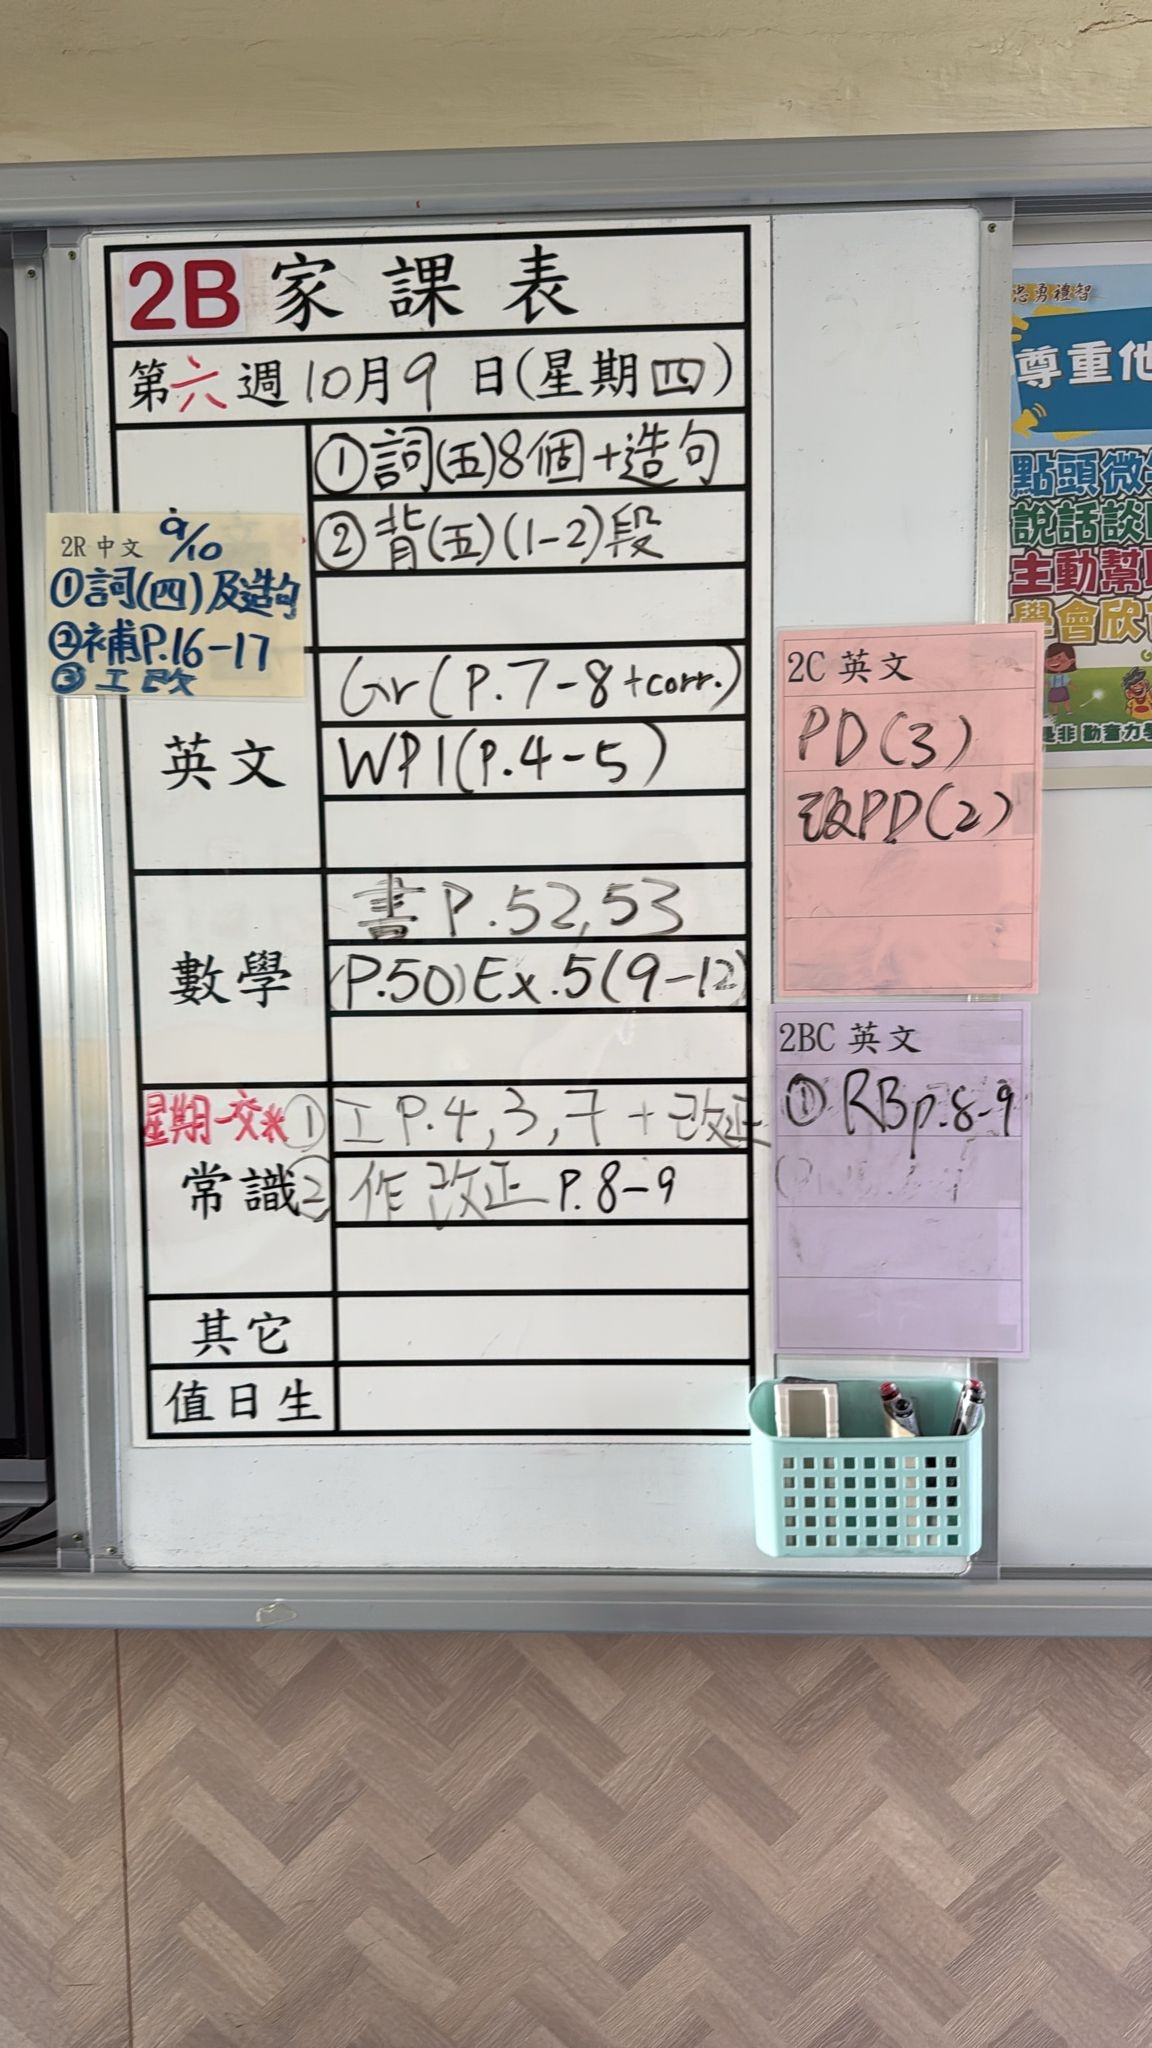 2B 家課表
第六週10月9日(星期四)
①詞(五)8個+造句
②背(五)(1-2)段
2R 中文 9/10
①詞(四)及造句
②補P.16-17
③工改
英文
Gr(P.7-8+corr.)
WP1(P.4-5)
數學
書P.52,53
(P.50)Ex.5(9-12)
星期一交*
常識
①工P.4,3,7+改正
②作改正P.8-9
其它
值日生
2C 英文
PD(3)
改PD(2)
2BC 英文
①RBp.8-9
忠勇禮智
尊重他
點頭微
說話談
主動幫
學會欣
是非 勤奮力